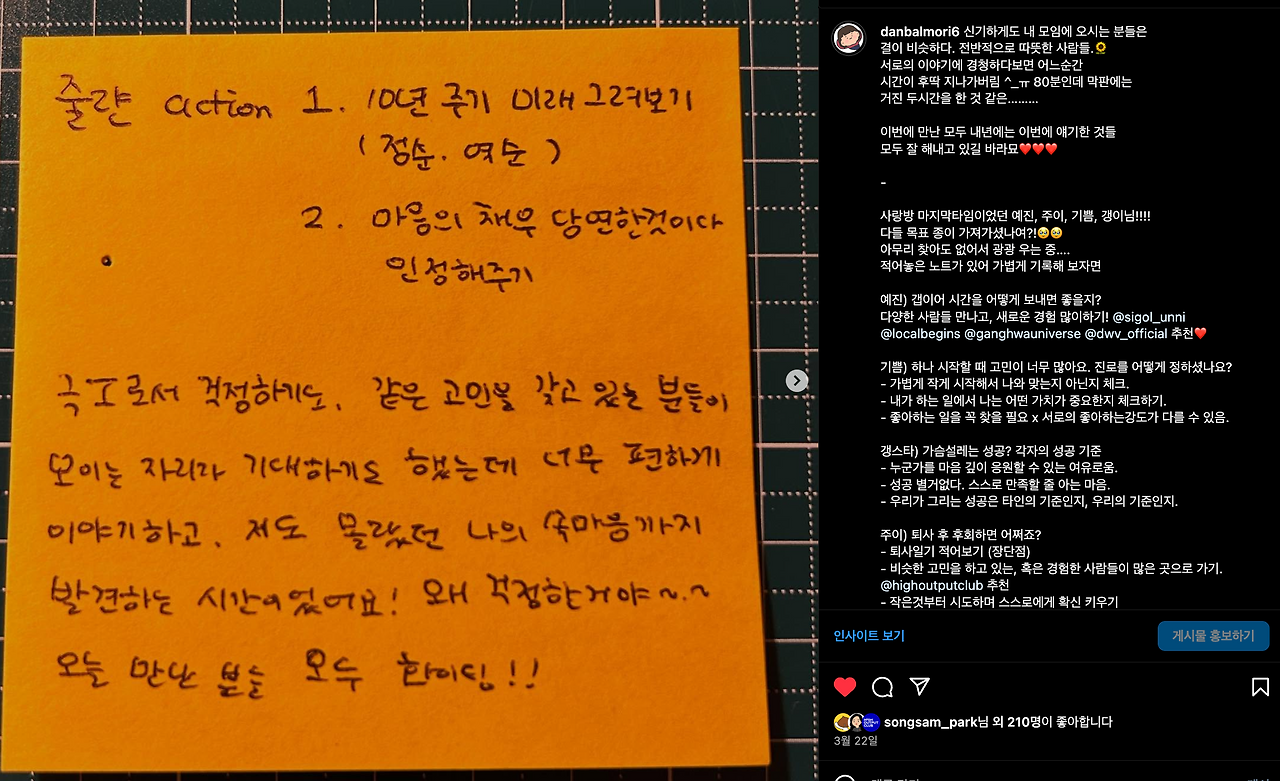 줄랸 action 1. 10년 주기 미래 그려보기
( 정순. 역순 )
2. 마음의 채무 당연한것이다
인정해주기
극I로서 걱정하기도, 같은 고민을 갖고 있는 분들이
모이는 자리라 기대하기도 했는데 너무 편하게
이야기하고, 저도 몰랐던 나의 속마음까지
발견하는 시간이었어요! 왜 걱정한거야~.~
오늘 만난 분들 모두 화이팅!!
danbalmori6 신기하게도 내 모임에 오시는 분들은
결이 비슷하다. 전반적으로 따뜻한 사람들.🌻
서로의 이야기에 경청하다보면 어느순간
시간이 후딱 지나가버림 ^_ㅠ 80분인데 막판에는
거진 두시간을 한 것 같은.........
이번에 만난 모두 내년에는 이번에 얘기한 것들
모두 잘 해내고 있길 바라묘❤️❤️❤️
-
사랑방 마지막타임이었던 예진, 주이, 기쁨, 갱이님!!!!
다들 목표 종이 가져가셨나여?!🥹🥹
아무리 찾아도 없어서 광광 우는 중....
적어놓은 노트가 있어 가볍게 기록해 보자면
예진) 갭이어 시간을 어떻게 보내면 좋을지?
다양한 사람들 만나고, 새로운 경험 많이하기! @sigol_unni
@localbegins @ganghwauniverse @dwv_official 추천❤️
기쁨) 하나 시작할 때 고민이 너무 많아요. 진로를 어떻게 정하셨나요?
- 가볍게 작게 시작해서 나와 맞는지 아닌지 체크.
- 내가 하는 일에서 나는 어떤 가치가 중요한지 체크하기.
- 좋아하는 일을 꼭 찾을 필요 x 서로의 좋아하는강도가 다를 수 있음.
갱스타) 가슴설레는 성공? 각자의 성공 기준
- 누군가를 마음 깊이 응원할 수 있는 여유로움.
- 성공 별거없다. 스스로 만족할 줄 아는 마음.
- 우리가 그리는 성공은 타인의 기준인지, 우리의 기준인지.
주이) 퇴사 후 후회하면 어쩌죠?
- 퇴사일기 적어보기 (장단점)
- 비슷한 고민을 하고 있는, 혹은 경험한 사람들이 많은 곳으로 가기.
@highoutputclub 추천
- 작은것부터 시도하며 스스로에게 확신 키우기
인사이트 보기
게시물 홍보하기
songsam_park님 외 210명이 좋아합니다
3월 22일